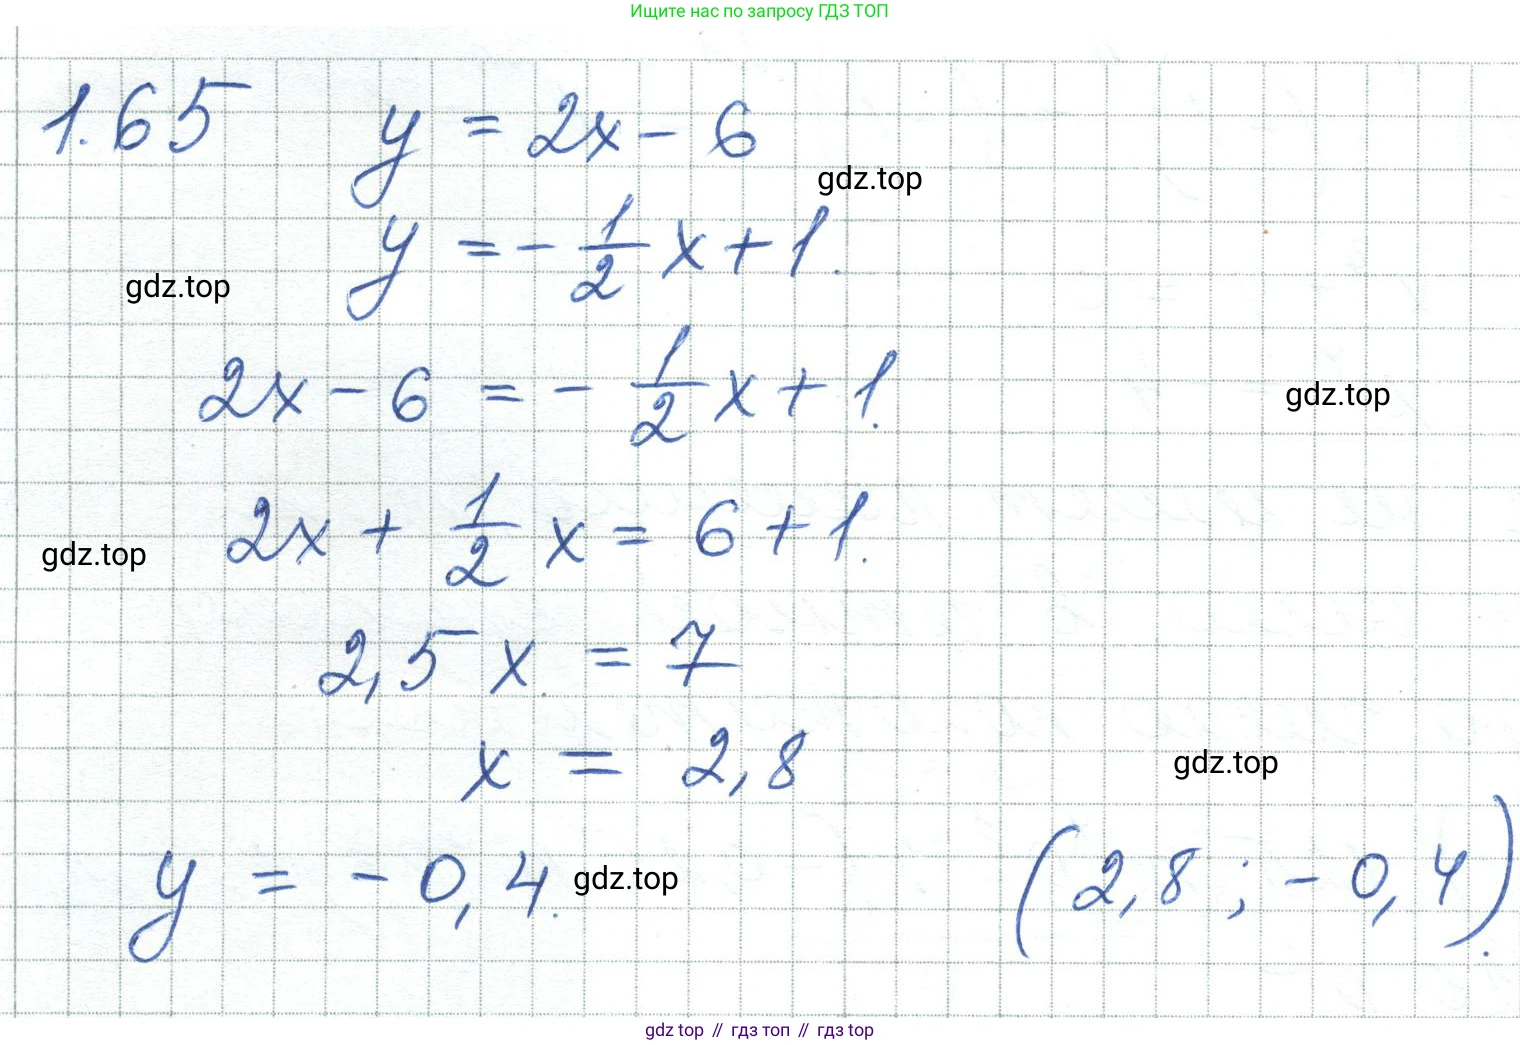 Ищите нас по запросу ГДЗ ТОП
1.65 y = 2x - 6
gdz.top
y = - 1/2 x + 1.
gdz.top
2x - 6 = - 1/2 x + 1.
gdz.top
2x + 1/2 x = 6 + 1.
gdz.top
2,5 x = 7
x = 2,8
gdz.top
y = - 0,4. gdz.top (2,8 ; - 0,4).
gdz top // гдз топ // гдз top